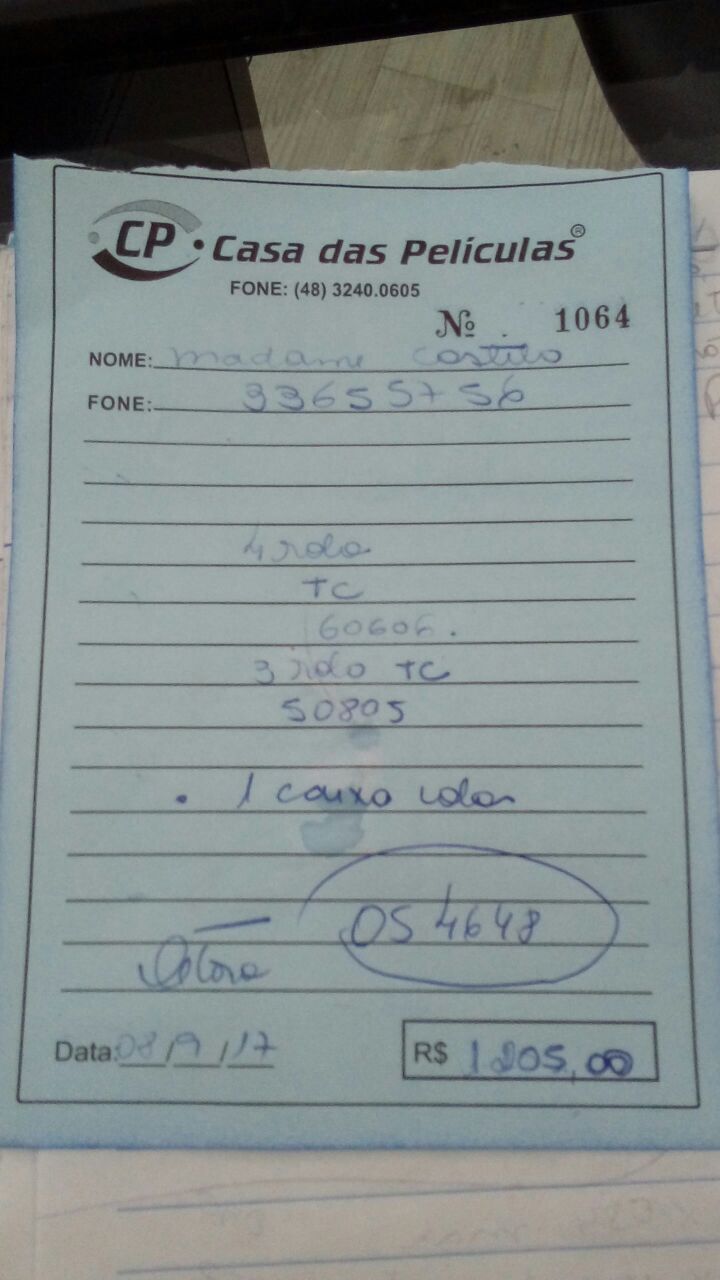 CP • Casa das Películas ®
FONE: (48) 3240.0605
Nº 1064
NOME: madame
FONE: 33655756
4 rolo
TC
60606.
3 rolo TC
50805
• 1 caixa
OS 4648
Data: 08/9/17
R$ 1205,00